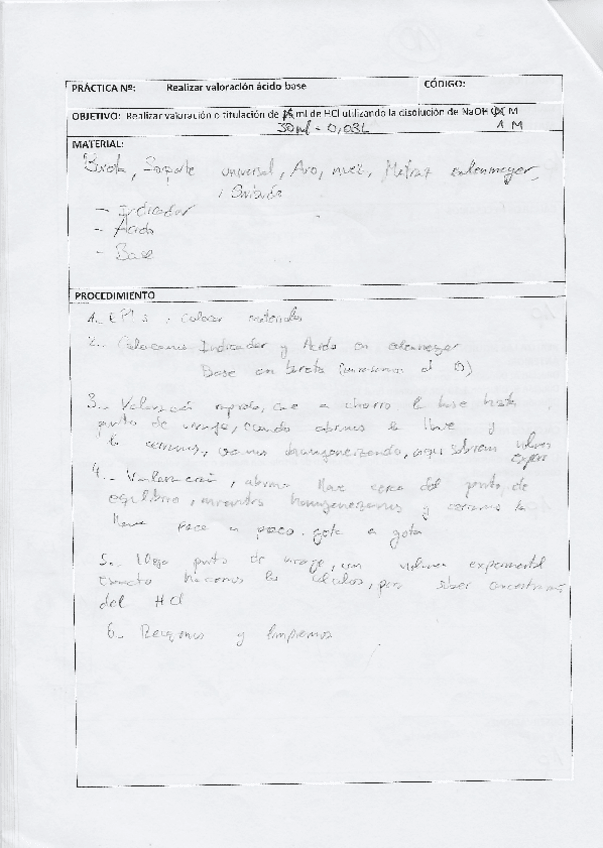 PRÁCTICA Nº: Realizar valoración ácido base CÓDIGO:
OBJETIVO: Realizar valoración o titulación de ml de HCl utilizando la disolución de NaOH M
30ml = 0,03L 1 M
MATERIAL:
Bureta, Soporte universal, Aro, nuez, Matraz erlenmeyer,
- Indicador
- Acido
- Base
PROCEDIMIENTO
1.- : Colocar materiales
2.- Colocamos Indicador y Acido en erlenmeyer
Base en bureta (enrasamos al 0)
3.- Valoración rapida, cae a chorro la base hasta
punto de viraje, cuando abrimos la llave y
la cerramos, vamos homogeneizando, aqui
4.- abrimos llave cerca del punto de
equilibrio, mientras homogenizamos y cerramos la
llave poco a poco. gota a gota
5.- Llega punto de viraje, con volumen experimental
exacto hacemos los cálculos, para saber concentración
del HCl
6.- Recogemos y limpiamos